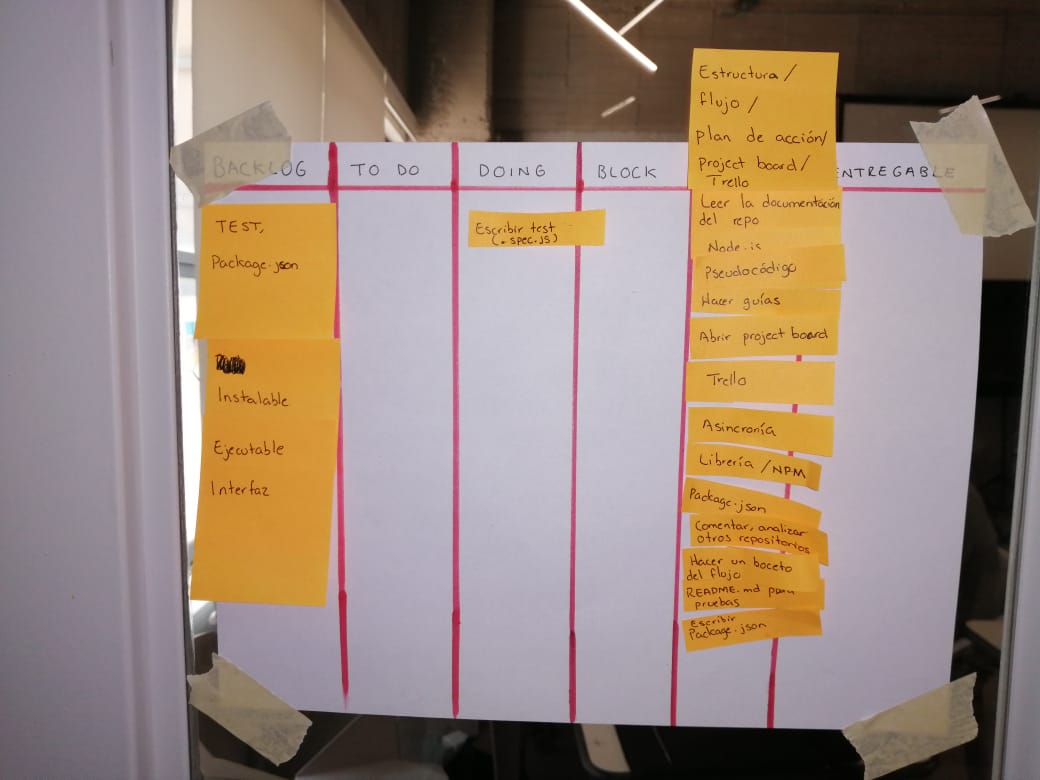 BACKLOG
TO DO
DOING
BLOCK
ENTREGABLE
TEST,
Package.json
Instalable
Ejecutable
Interfaz
Escribir test
(.spec.js)
Estructura /
flujo /
plan de acción/
Project board/
Trello
Leer la documentación
del repo
Node.js
Pseudocódigo
Hacer guías
Abrir project board
Trello
Asincronía
Librería /NPM
Package.json
Comentar, analizar
otros repositorios
Hacer un boceto
del flujo
README.md para
pruebas
Escribir
Package.json